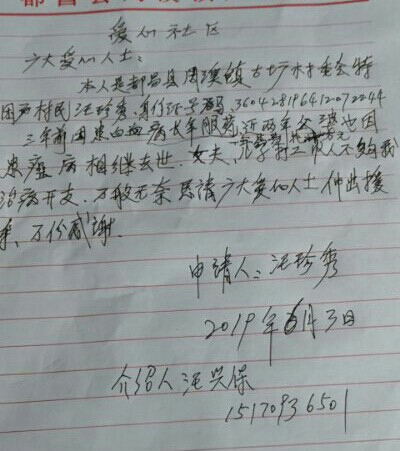 爱心社区
广大爱心人士:
本人是都昌县周溪镇古塘村委会特
困户村民汪珍秀,身份证号码,360428196412072244
三年前因患白血病长年服药,近两年公婆也因
患癌病相继去世.丈夫、打工收入不够我
治病开支.万般无奈恳请广大爱心人士伸出援
手,万份感谢.
申请人:汪珍秀
2019年6月3日
介绍人汪兴保
15170936501